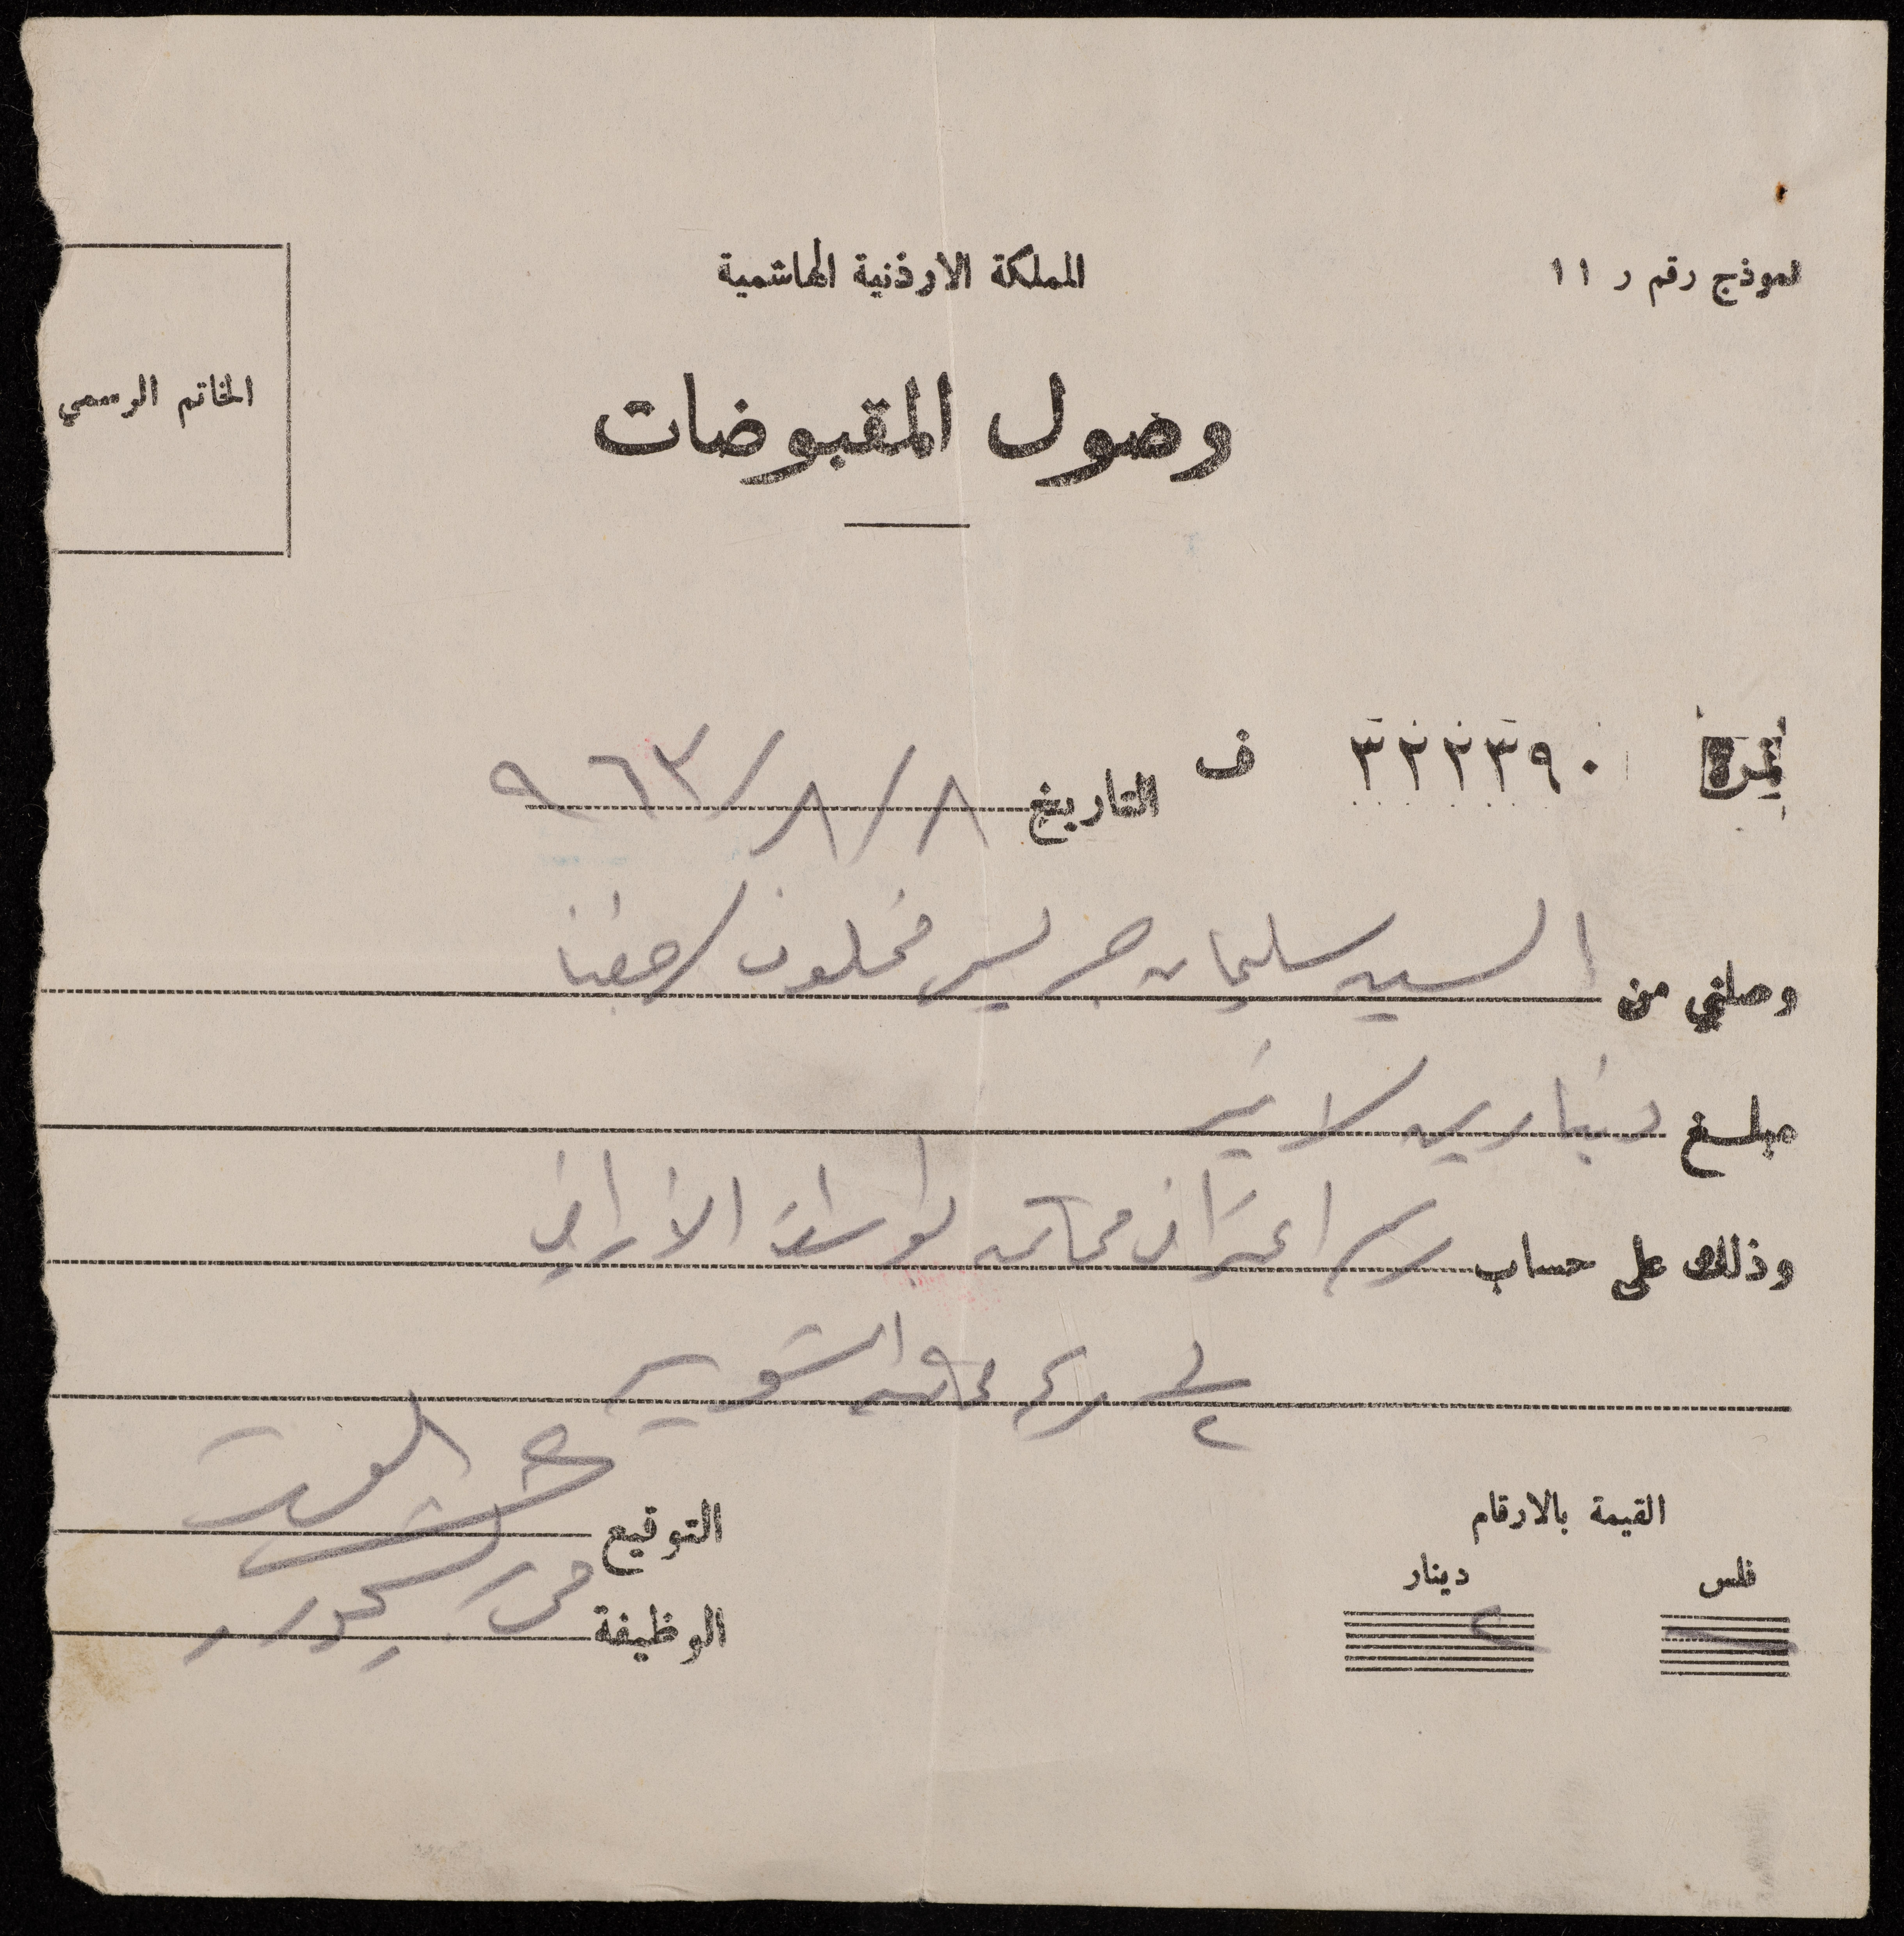 نموذج رقم ر ١١
المملكة الاردنية الهاشمية
الخاتم الرسمي
وصول المقبوضات
نمرة ٣٢٢٣٩٠ ف التاريخ ٨/٨/٩٦٣
وصلني من السيد سليمان جريس مخلوف / جفنا
مبلغ دينارين لا غير
وذلك على حساب رسم اعتراض محاكمة الاراضي
رسم محاكمة التسوية
القيمة بالارقام
فلس دينار
٢
التوقيع
الوظيفة